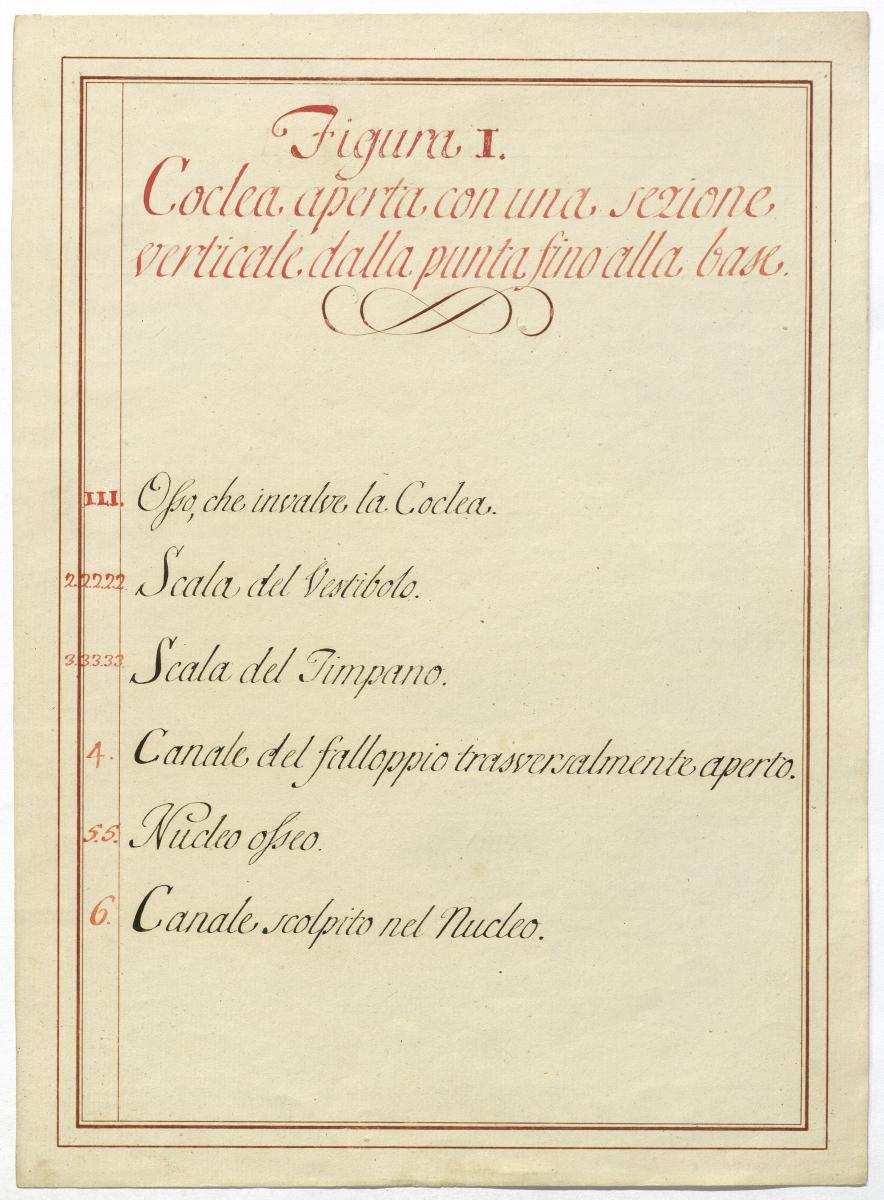 Figura I.
Coclea aperta con una sezione
verticale dalla punta fino alla base.
III. Osso, che involve la Coclea.
2.2.2.2.2. Scala del Vestibolo.
3.3.3.3.3. Scala del Timpano.
4. Canale del falloppio trasversalmente aperto.
5.5. Nucleo osseo.
6. Canale scolpito nel Nucleo.